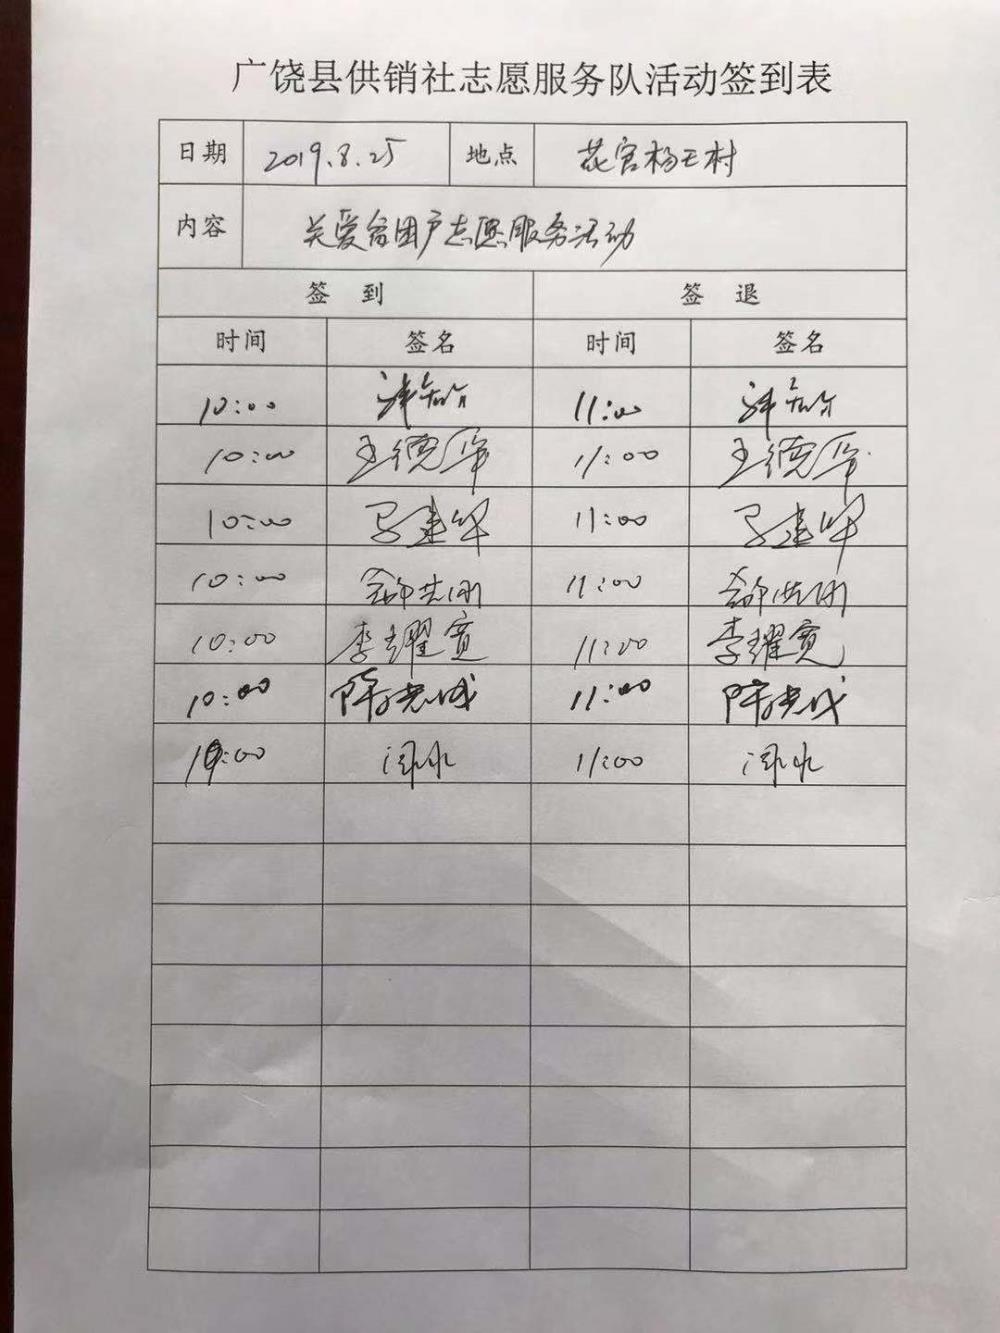 广饶县供销社志愿服务队活动签到表
日期 2019.8.25 地点 花官杨王村
内容 关爱贫困户志愿服务活动
签 到 签 退
时间 签名 时间 签名
10:00 11:00
10:00 王德军 11:00 王德军
10:00 马建华 11:00 马建华
10:00 11:00
10:00 李耀宽 11:00 李耀宽
10:00 11:00
10:00 11:00